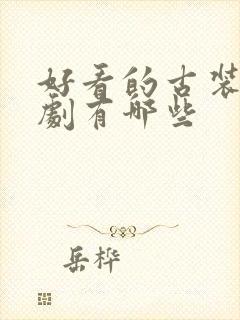 好看的古装
劇有哪些
岳桦